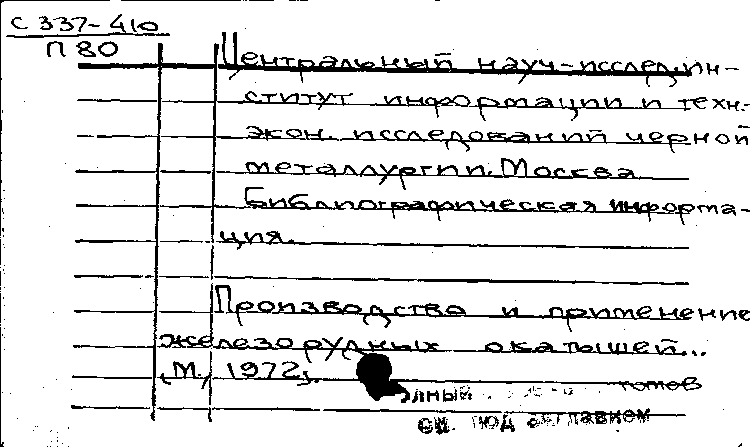 С 337-410
П 80
Центральный науч-исслед.ин-
ститут информации и техн.-
экон. исследований черной
металлургии. Москва
Библиографическая информа-
ция.
Производство и применение
железорудных окатышей...
[М., 1972].
томов
см. под заглавием